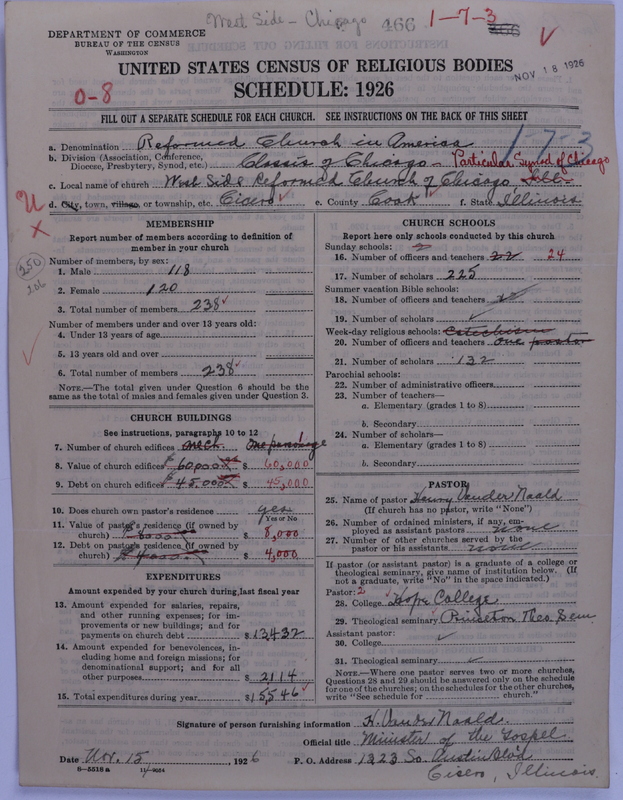 West Side - Chicago 466 1-7-3
DEPARTMENT OF COMMERCE
BUREAU OF THE CENSUS
WASHINGTON
UNITED STATES CENSUS OF RELIGIOUS BODIES
NOV 18 1926
SCHEDULE: 1926
0-8
FILL OUT A SEPARATE SCHEDULE FOR EACH CHURCH. SEE INSTRUCTIONS ON THE BACK OF THIS SHEET
a. Denomination Reformed Church in America
1-7-3
b. Division (Association, Conference, Diocese, Presbytery, Synod, etc.) Classis of Chicago - Particular Synod of Chicago
c. Local name of church West Side Reformed Church of Chicago, Ill.
d. City, town, village, or township, etc. Cicero e. County Cook f. State Illinois
MEMBERSHIP
Report number of members according to definition of
member in your church
Number of members, by sex:
250
1. Male 118
2. Female 120
3. Total number of members 238
Number of members under and over 13 years old:
4. Under 13 years of age
5. 13 years old and over
6. Total number of members 238
NOTE.—The total given under Question 6 should be the
same as the total of males and females given under Question 3.
CHURCH BUILDINGS
See instructions, paragraphs 10 to 12
7. Number of church edifices one parsonage
8. Value of church edifices $ 60,000 $ 60,000
9. Debt on church edifices $ 45,000 $ 45,000
10. Does church own pastor's residence yes
Yes or No
11. Value of pastor's residence (if owned by
church) 8000 $ 8,000
12. Debt on pastor's residence (if owned by
church) $ 4,000
EXPENDITURES
Amount expended by your church during last fiscal year
13. Amount expended for salaries, repairs,
and other running expenses; for im-
provements or new buildings; and for
payments on church debt $ 13,432
14. Amount expended for benevolences, in-
cluding home and foreign missions; for
denominational support; and for all
other purposes $ 2114
15. Total expenditures during year $ 15,546
CHURCH SCHOOLS
Report here only schools conducted by this church
Sunday schools:
16. Number of officers and teachers 22 24
17. Number of scholars 225
Summer vacation Bible schools:
18. Number of officers and teachers
19. Number of scholars
Week-day religious schools: Catechism
20. Number of officers and teachers one pastor
21. Number of scholars 132
Parochial schools:
22. Number of administrative officers
23. Number of teachers—
a. Elementary (grades 1 to 8)
b. Secondary
24. Number of scholars—
a. Elementary (grades 1 to 8)
b. Secondary
PASTOR
25. Name of pastor Henry Vander Naald
(If church has no pastor, write "None")
26. Number of ordained ministers, if any, em-
ployed as assistant pastors none
27. Number of other churches served by the
pastor or his assistants none
If pastor (or assistant pastor) is a graduate of a college or
theological seminary, give name of institution below. (If
not a graduate, write "No" in the space indicated.)
Pastor: 2
28. College Hope College
29. Theological seminary Princeton Theo. Sem.
Assistant pastor:
30. College
31. Theological seminary
NOTE.—Where one pastor serves two or more churches,
Questions 28 and 29 should be answered only on the schedule
for one of the churches; on the schedules for the other churches,
write "See schedule for church."
Signature of person furnishing information H. Vander Naald.
Official title Minister of the Gospel
Date Nov. 15, 1926 P. O. Address 1323 So. Austin Blvd
8—5518 a
Cicero, Illinois.